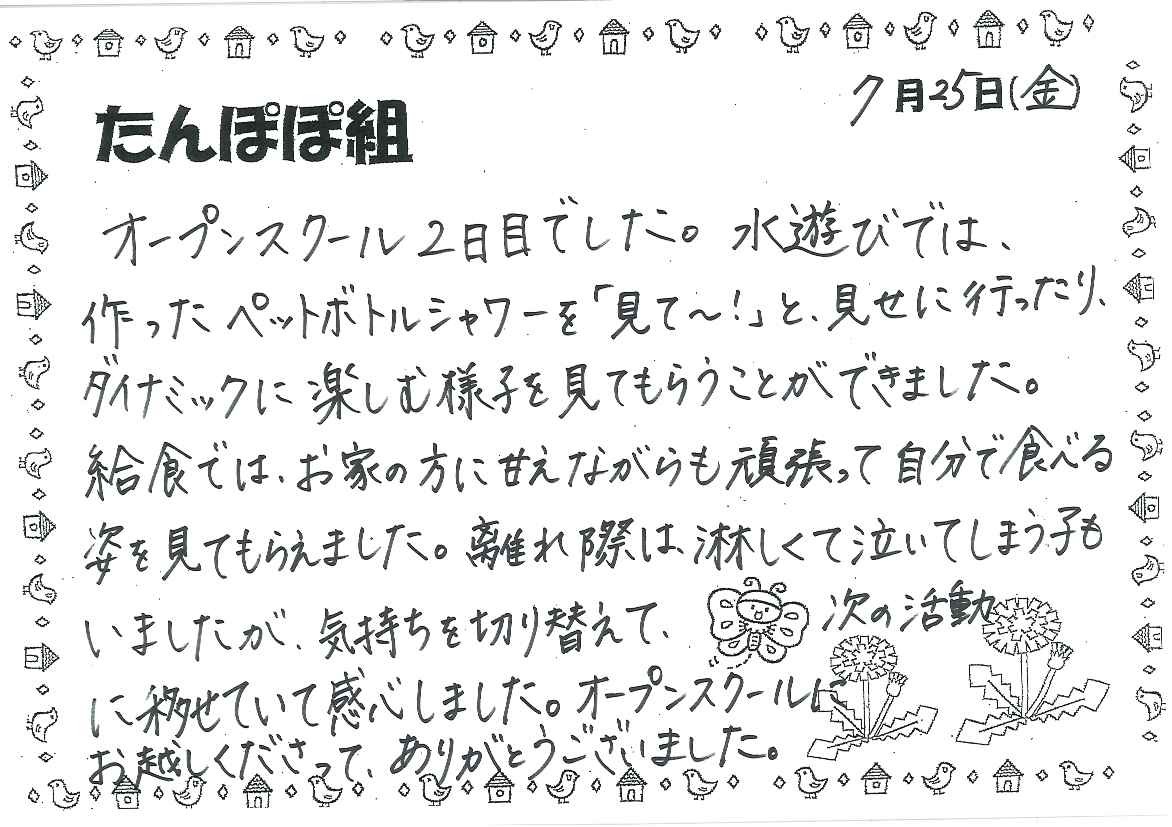 7月25日(金)
たんぽぽ組
オープンスクール2日目でした。水遊びでは、
作ったペットボトルシャワーを「見て〜!」と、見せに行ったり、
ダイナミックに楽しむ様子を見てもらうことができました。
給食では、お家の方に甘えながらも頑張って自分で食べる
姿を見てもらえました。離れ際は、淋しくて泣いてしまう子も
いましたが、気持ちを切り替えて、次の活動
に移せていて感心しました。オープンスクールに
お越しくださって、ありがとうございました。